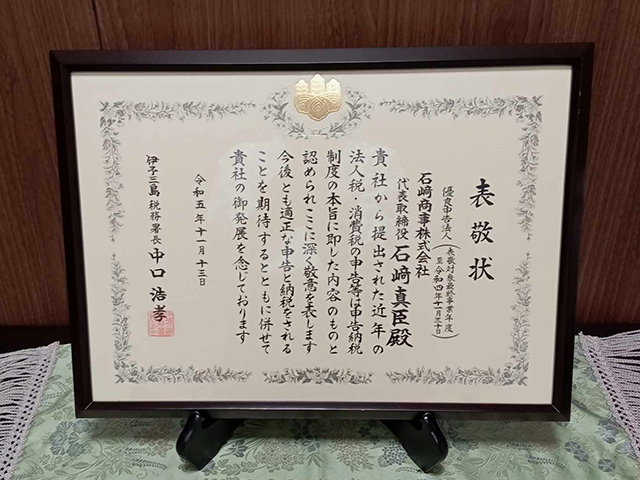 表敬状
優良申告法人（表敬対象最終事業年度 至令和四年十一月三十日）
石﨑商事株式会社
代表取締役 石﨑真臣殿
貴社から提出された近年の
法人税・消費税の申告等は申告納税
制度の本旨に即した内容のものと
認められここに深く敬意を表します
今後とも適正な申告と納税をされる
ことを期待するとともに併せて
貴社の御発展を念じております
令和五年十一月十三日
伊予三島税務署長 中口浩孝